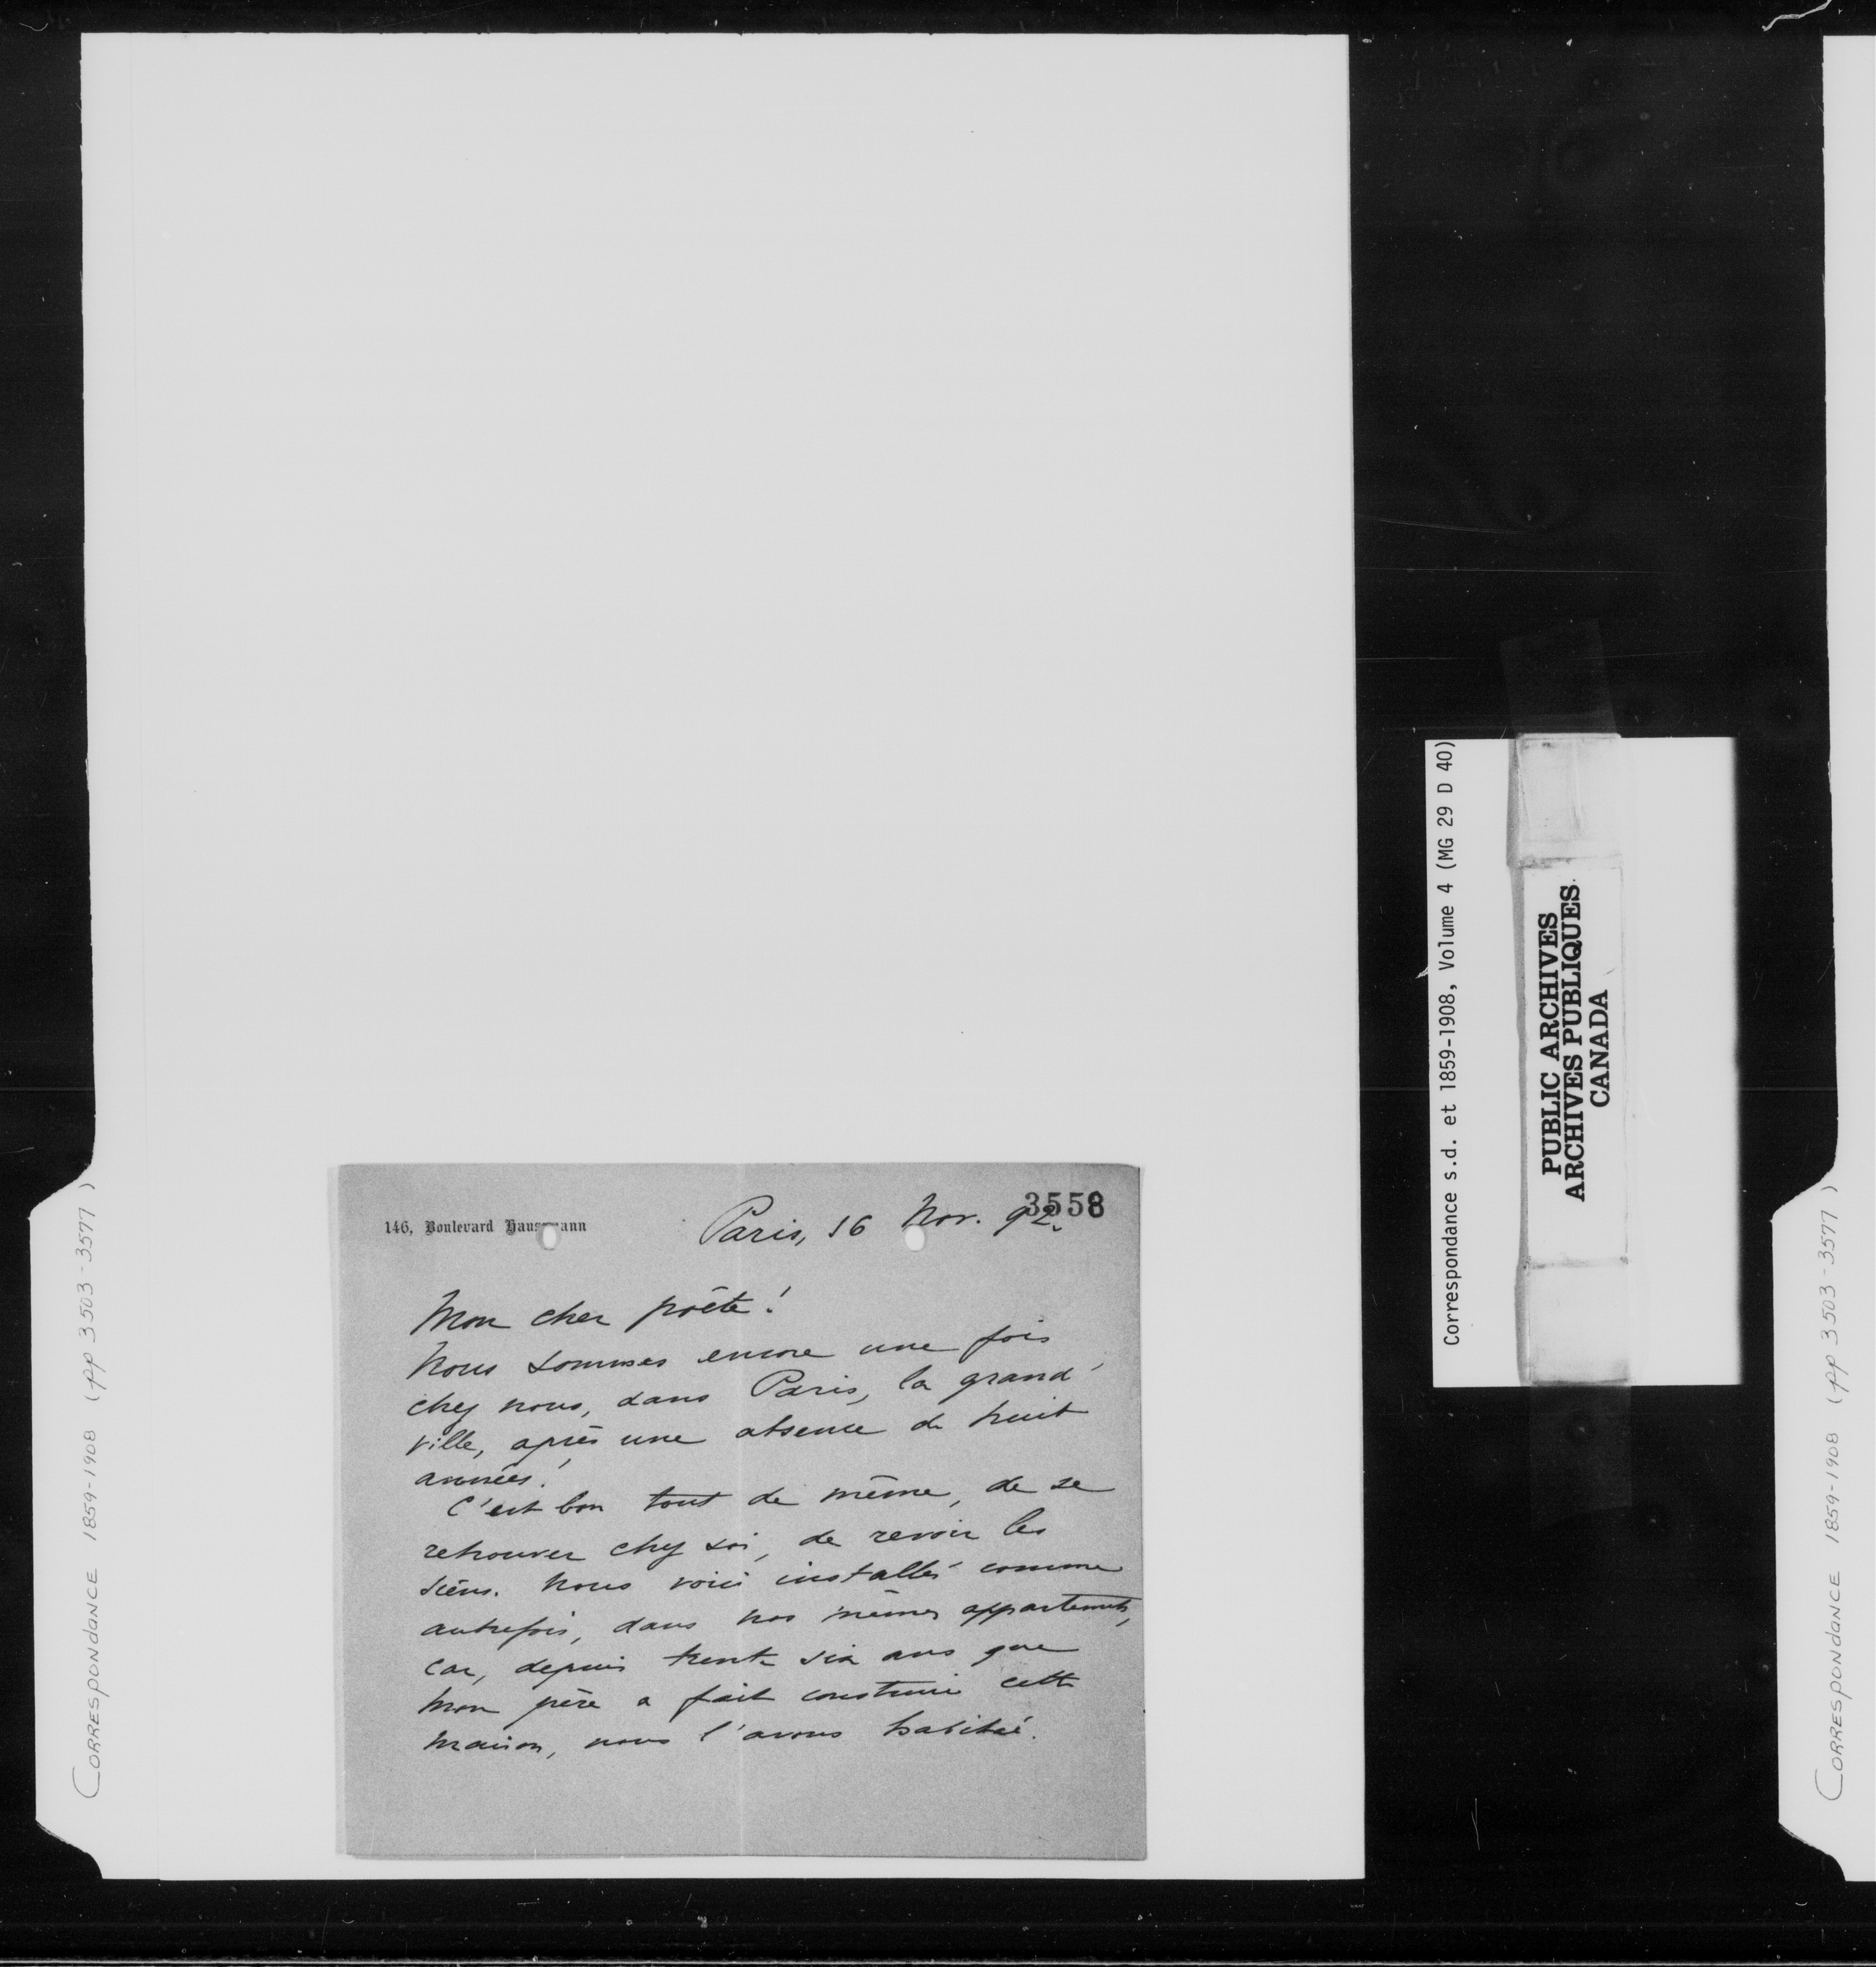 3558
146, Boulevard Haussmann
Paris, 16 Nov. 92.
Mon cher poëte!
Nous sommes encore une fois
chez nous, dans Paris, la grand'
ville, après une absence de huit
années!
C'est bon tout de même, de se
retrouver chez soi, de revoir les
siens. Nous voici installés comme
autrefois, dans nos mêmes appartements,
car, depuis trente six ans que
mon père a fait construire cette
maison, nous l'avons habitée.
CORRESPONDANCE 1859-1908 (pp 3503-3577)
Correspondance s.d. et 1859-1908, Volume 4 (MG 29 D 40)
PUBLIC ARCHIVES
ARCHIVES PUBLIQUES
CANADA
CORRESPONDANCE 1859-1908 (pp 3503-3577)